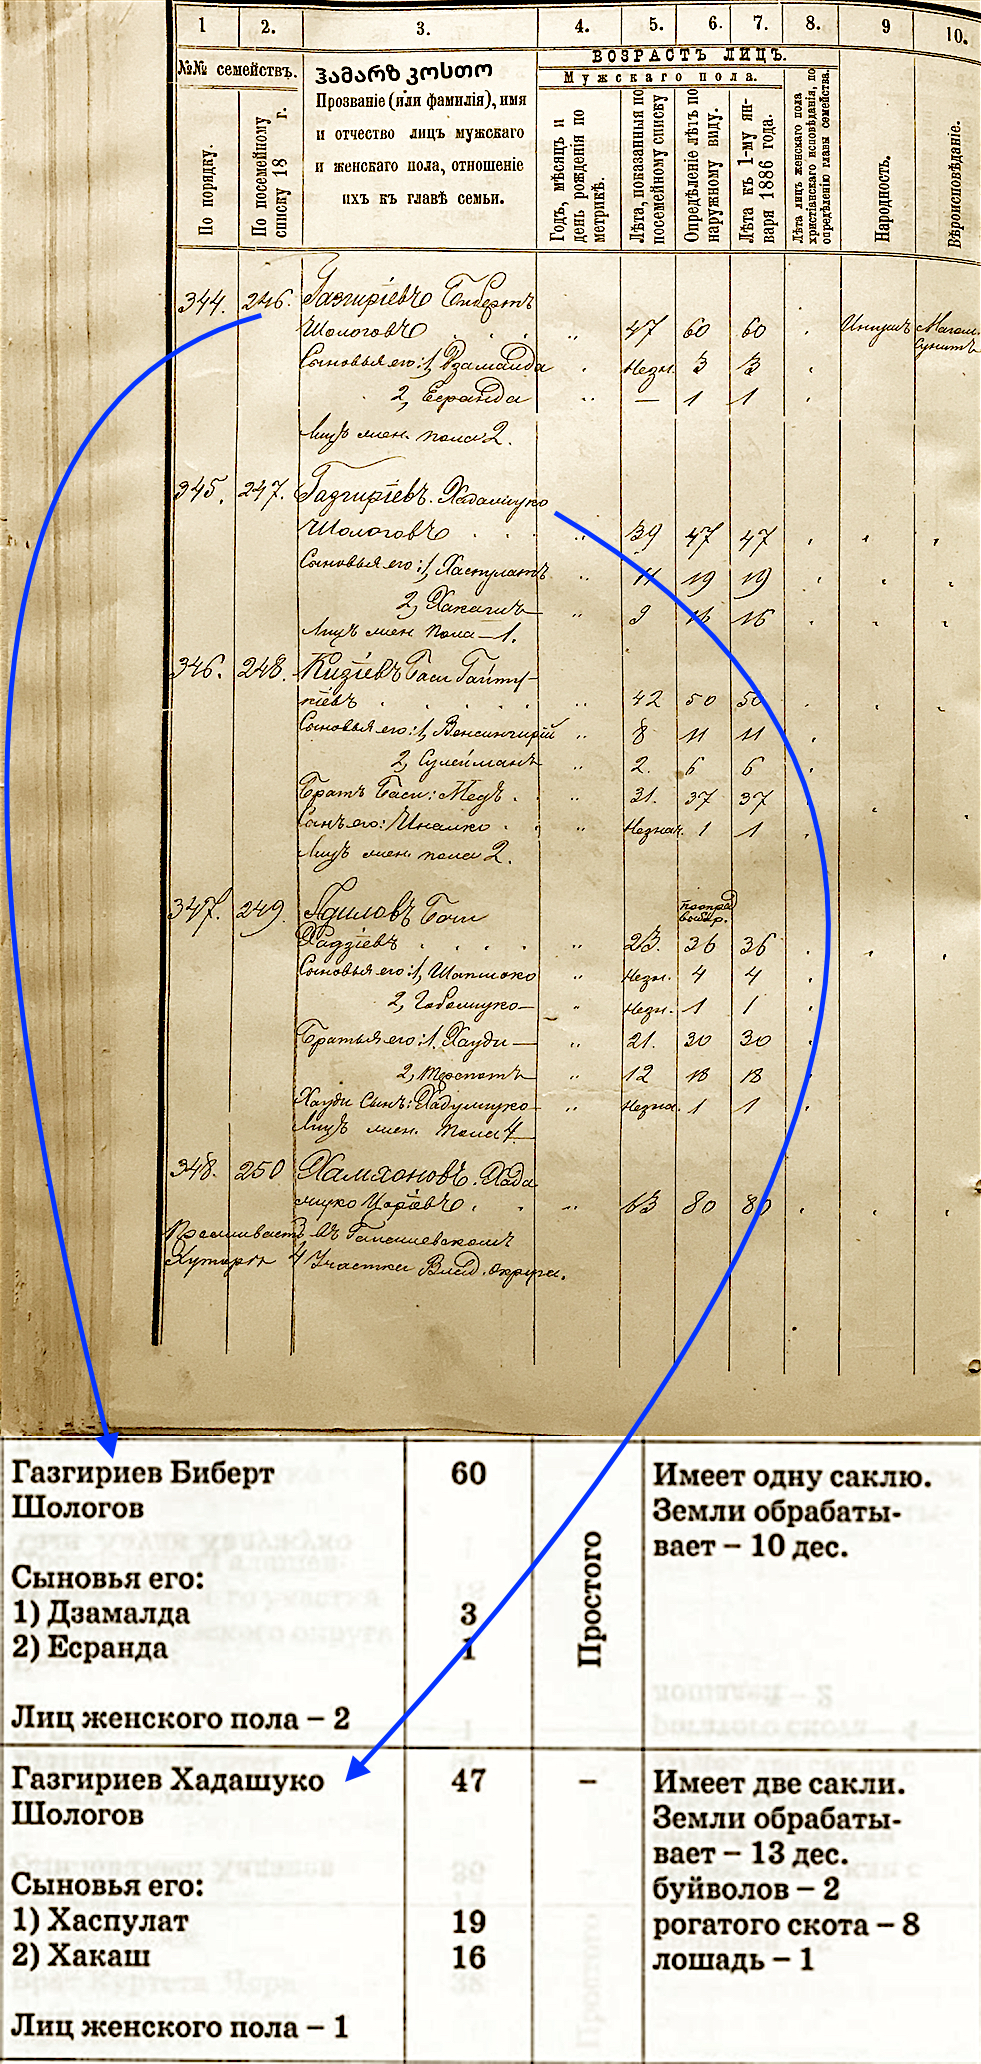 1 2. 3. 4. 5. 6. 7. 8. 9 10.
ВОЗРАСТЪ ЛИЦЪ.
Мужскаго пола.
№№ семействъ.
По порядку.
По посемейному списку 18 г.
ჰამარზ კოსთო
Прозваніе (или фамилія), имя
и отчество лицъ мужскаго
и женскаго пола, отношеніе
ихъ къ главѣ семьи.
Годъ, мѣсяцъ и день рожденія по метрикѣ.
Лѣта, показанныя по посемейному списку
Опредѣленіе лѣтъ по наружному виду.
Лѣта къ 1-му января 1886 года.
Лѣта лицъ женскаго пола христіанскаго исповѣданія, по опредѣленію главы семейства.
Народность.
Вѣроисповѣданіе.
344. 246. Газгиріевъ Биберть
Шологовъ 47 60 60 Ингушъ Магом. Сунитъ
Сыновья его: 1, Дзамалда Незн. 3 3
2, Есранда — 1 1
Лицъ жен. пола 2.
345. 247. Газгиріевъ Хадашуко
Шологовъ 39 47 47
Сыновья его: 1, Хаспулатъ 11 19 19
2, Хакашъ 9 16 16
Лицъ жен. пола — 1.
346. 248. Кизіевъ Гайту-
ніевъ 42 50 50
Сыновья его: 1, 8 11 11
2, Сулейманъ 2. 6 6
Братъ 31. 37 37
Сынъ его: Иналко Незнач. 1 1
Лицъ жен. пола 2.
347. 249. Адиловъ
Хадзіевъ 23. 36 36
Сыновья его: 1, Незн. 4 4
2, Незн. 1 1
Братья его: 1. Хауди — 21. 30 30
2, 12 18 18
Хауди Сынъ: Незна. 1 1
Лицъ жен. пола 4
348. 250 Хамхоновъ. Хада
шуко 63 80 80
Проживаетъ въ
Хуторѣ 4 Участка Влад. округа.
Газгириев Биберт 60 Простого Имеет одну саклю.
Шологов Земли обрабаты-
вает – 10 дес.
Сыновья его:
1) Дзамалда 3
2) Есранда 1
Лиц женского пола – 2
Газгириев Хадашуко 47 – Имеет две сакли.
Шологов Земли обрабаты-
вает – 13 дес.
Сыновья его: буйволов – 2
1) Хаспулат 19 рогатого скота – 8
2) Хакаш 16 лошадь – 1
Лиц женского пола – 1